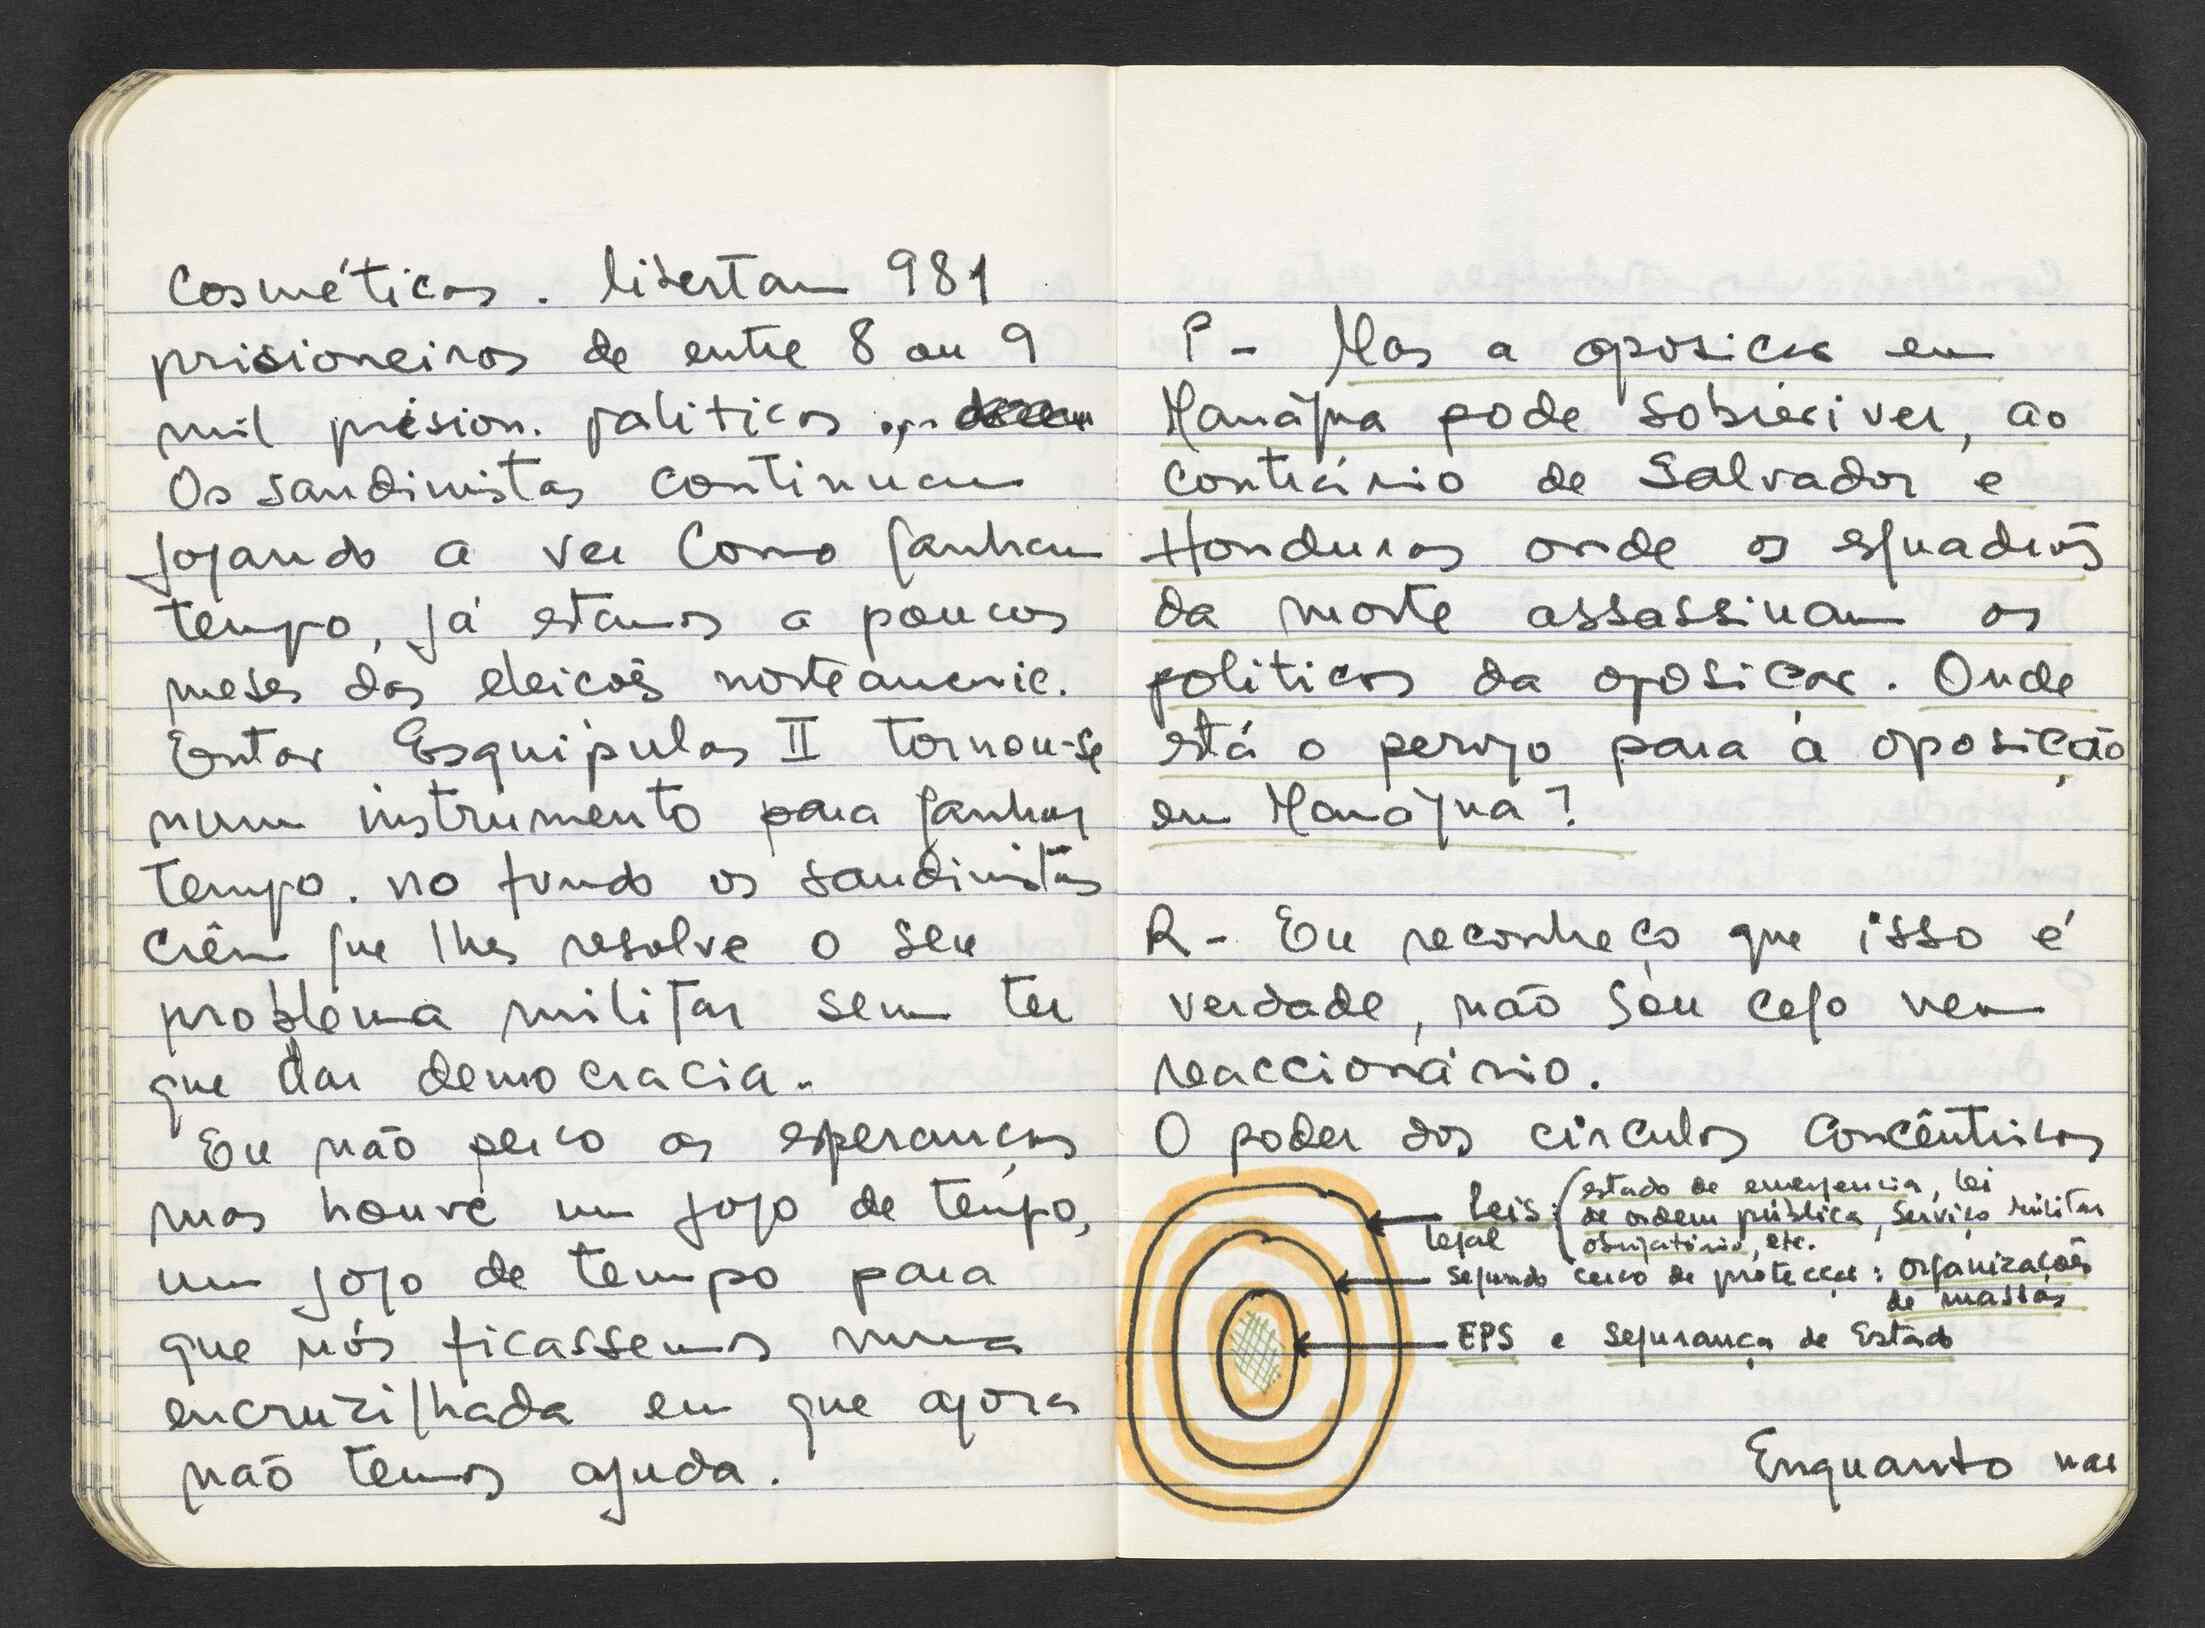 Cosméticos. libertam 981
prisioneiros de entre 8 ou 9
mil prision. politicos ...
Os sandinistas continuam
jogando a ver como ganham
tempo, já estamos a poucos
meses das eleicoēs norteameric.
Entao Esquipulas II tornou-se
num instrumento para ganhar
tempo. no fundo os sandinistas
crêm que lhes resolve o seu
problema militar sem ter
que dar democracia.
Eu não perco as esperanças
mas houve um jogo de tempo,
um jogo de tempo para
que nós ficassemos numa
encruzilhada em que agora
não temos ajuda.
P - Mas a oposicao em
Manágua pode sobreviver, ao
contrário de Salvador e
Honduras onde os esquadrōes
da morte assassinam os
politicos da oposicao. Onde
está o perigo para a oposição
em Manágua?
R - Eu reconheço que isso é
verdade, não sou cego nem
reaccionário.
O poder dos circulos concêntricos
leis: estado de emergencia, lei
de ordem pública, serviço militar
legal obrigatório, etc.
segundo cerco de protecçao: organizacoēs
de massas
EPS e segurança de Estado
Enquanto nao